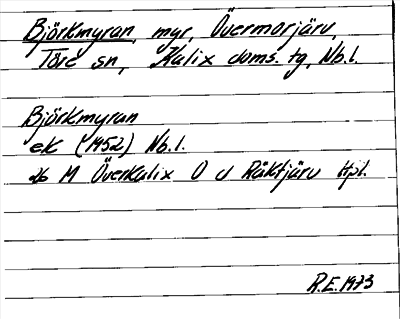 Björkmyran, myr, Övermorjärv,
Töre sn, Kalix doms. tg, Nb.l.
Björkmyran
ek (1952) Nb.l.
26 M Överkalix O d Räktjärv Hpl.
R.E. 1973